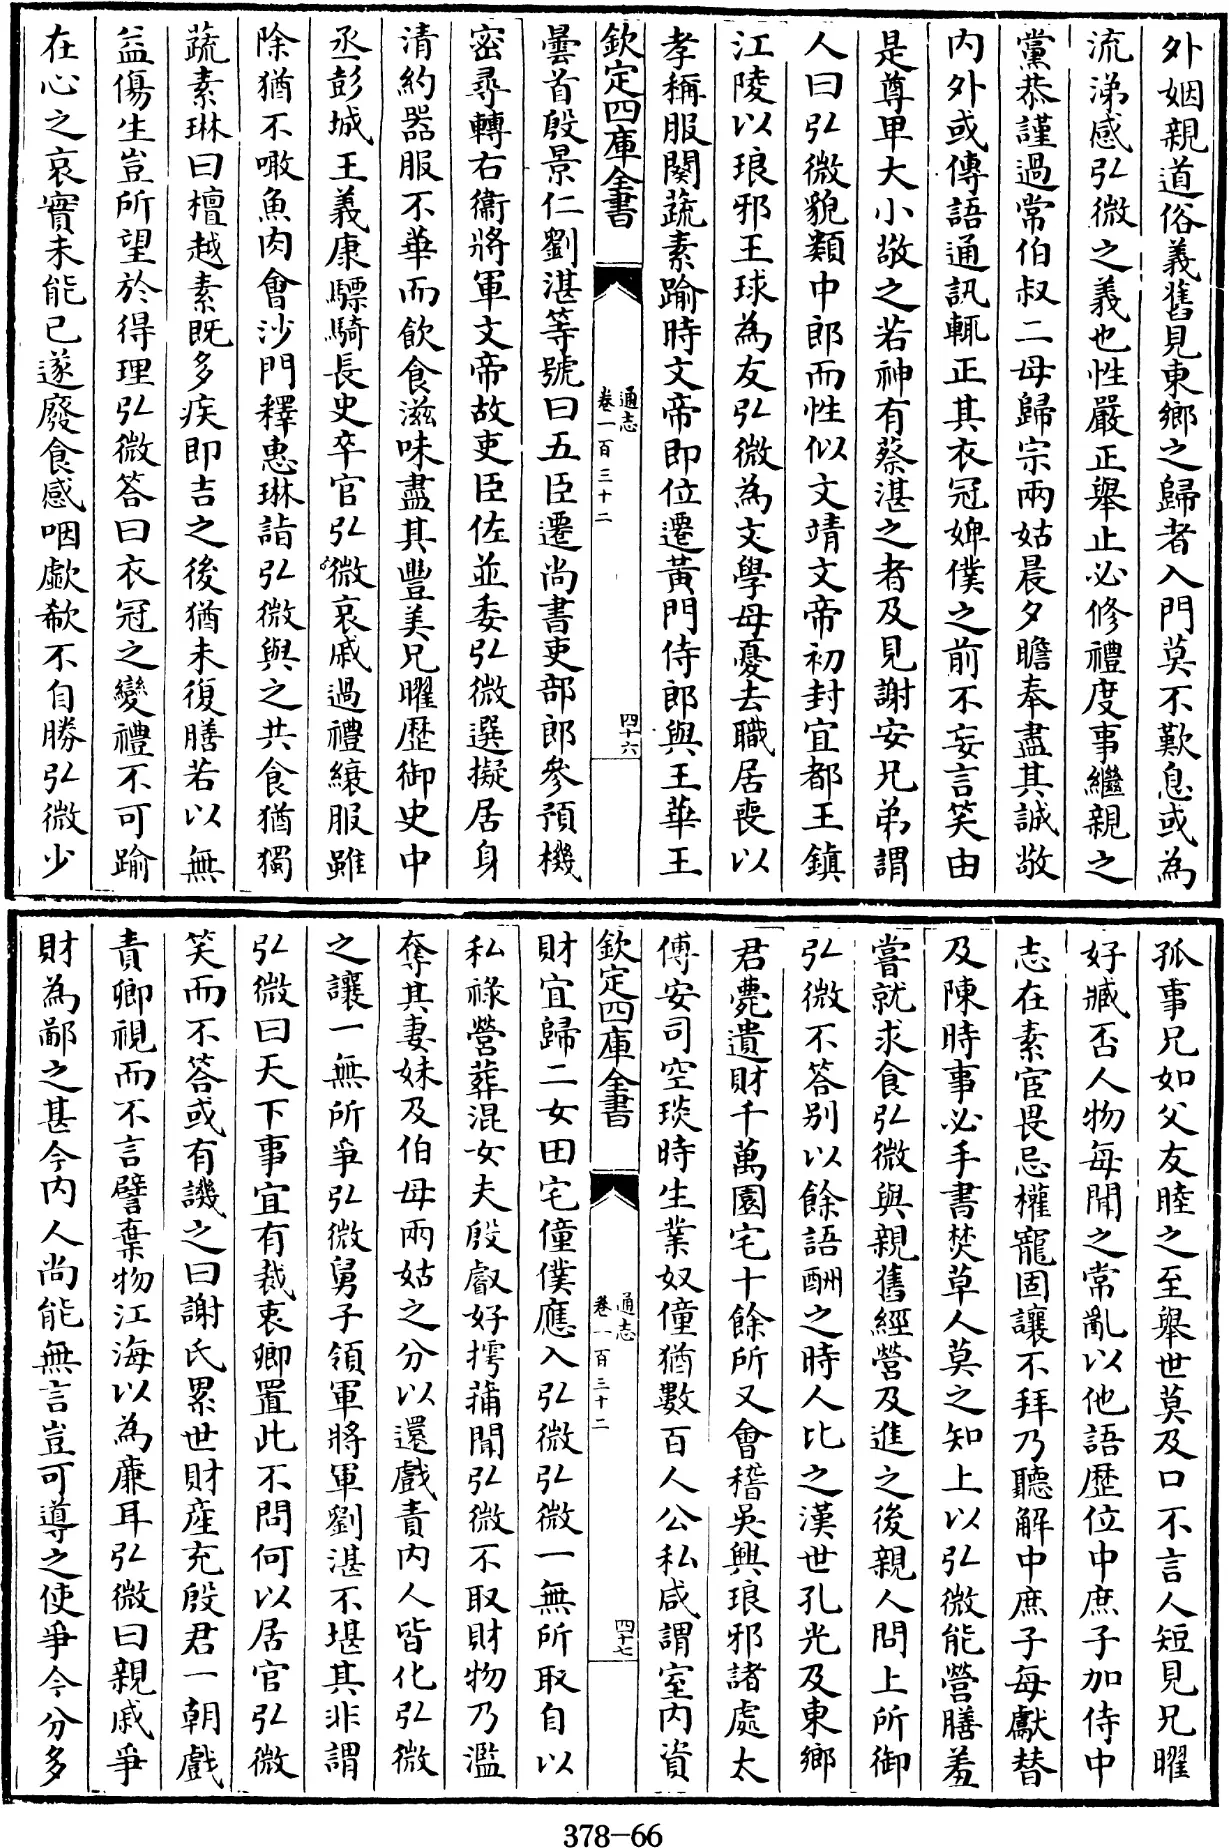 外姻親道俗義舊見東鄉之歸者入門莫不歎息或為
流涕感弘微之義也性嚴正舉止必修禮度事繼親之
黨恭謹過常伯叔二母歸宗兩姑晨夕瞻奉盡其誠敬
内外或傳語通訊輒正其衣冠婢僕之前不妄言笑由
是尊卑大小敬之若神有蔡湛之者及見謝安兄弟謂
人曰弘微貌類中郎而性似文靖文帝初封宜都王鎮
江陵以琅邪王球為友弘微為文學母憂去職居喪以
孝稱服闋蔬素踰時文帝即位遷黃門侍郎與王華王
欽定四庫全書
通志
卷一百三十二
四十六
曇首殷景仁劉湛等號曰五臣遷尚書吏部郎參預機
密尋轉右衞將軍文帝故吏臣佐並委弘微選擬居身
清約器服不華而飲食滋味盡其豐美兄曜歷御史中
丞彭城王義康驃騎長史卒官弘微哀戚過禮纕服雖
除猶不噉魚肉會沙門釋惠琳詣弘微與之共食猶獨
蔬素琳曰檀越素既多疾即吉之後猶未復膳若以無
益傷生豈所望於得理弘微答曰衣冠之變禮不可踰
在心之哀實未能已遂廢食感咽歔欷不自勝弘微少
孤事兄如父友睦之至舉世莫及口不言人短見兄曜
好臧否人物每聞之常亂以他語歷位中庶子加侍中
志在素宦畏忌權寵固讓不拜乃聽解中庶子每獻替
及陳時事必手書焚草人莫之知上以弘微能營膳羞
嘗就求食弘微與親舊經營及進之後親人問上所御
弘微不答别以餘語酬之時人比之漢世孔光及東鄉
君薨遺財千萬園宅十餘所又會稽吳興琅邪諸處太
傅安司空琰時生業奴僮猶數百人公私咸謂室内資
欽定四庫全書
通志
卷一百三十二
四十七
財宜歸二女田宅僮僕應入弘微弘微一無所取自以
私祿營葬混女夫殷叡好摴蒱聞弘微不取財物乃濫
奪其妻妹及伯母兩姑之分以還戲責内人皆化弘微
之讓一無所爭弘微舅子領軍將軍劉湛不堪其非謂
弘微曰天下事宜有裁衷卿置此不問何以居官弘微
笑而不答或有譏之曰謝氏累世財產充殷君一朝戲
責卿視而不言譬棄物江海以為廉耳弘微曰親戚爭
財為鄙之甚今内人尚能無言豈可導之使爭今分多
378-66